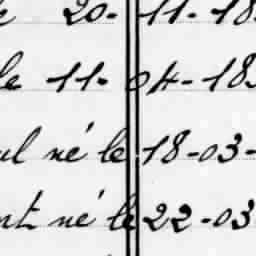 20- 11-18
le 11-04-18
né le 18-03-
né le 22-03